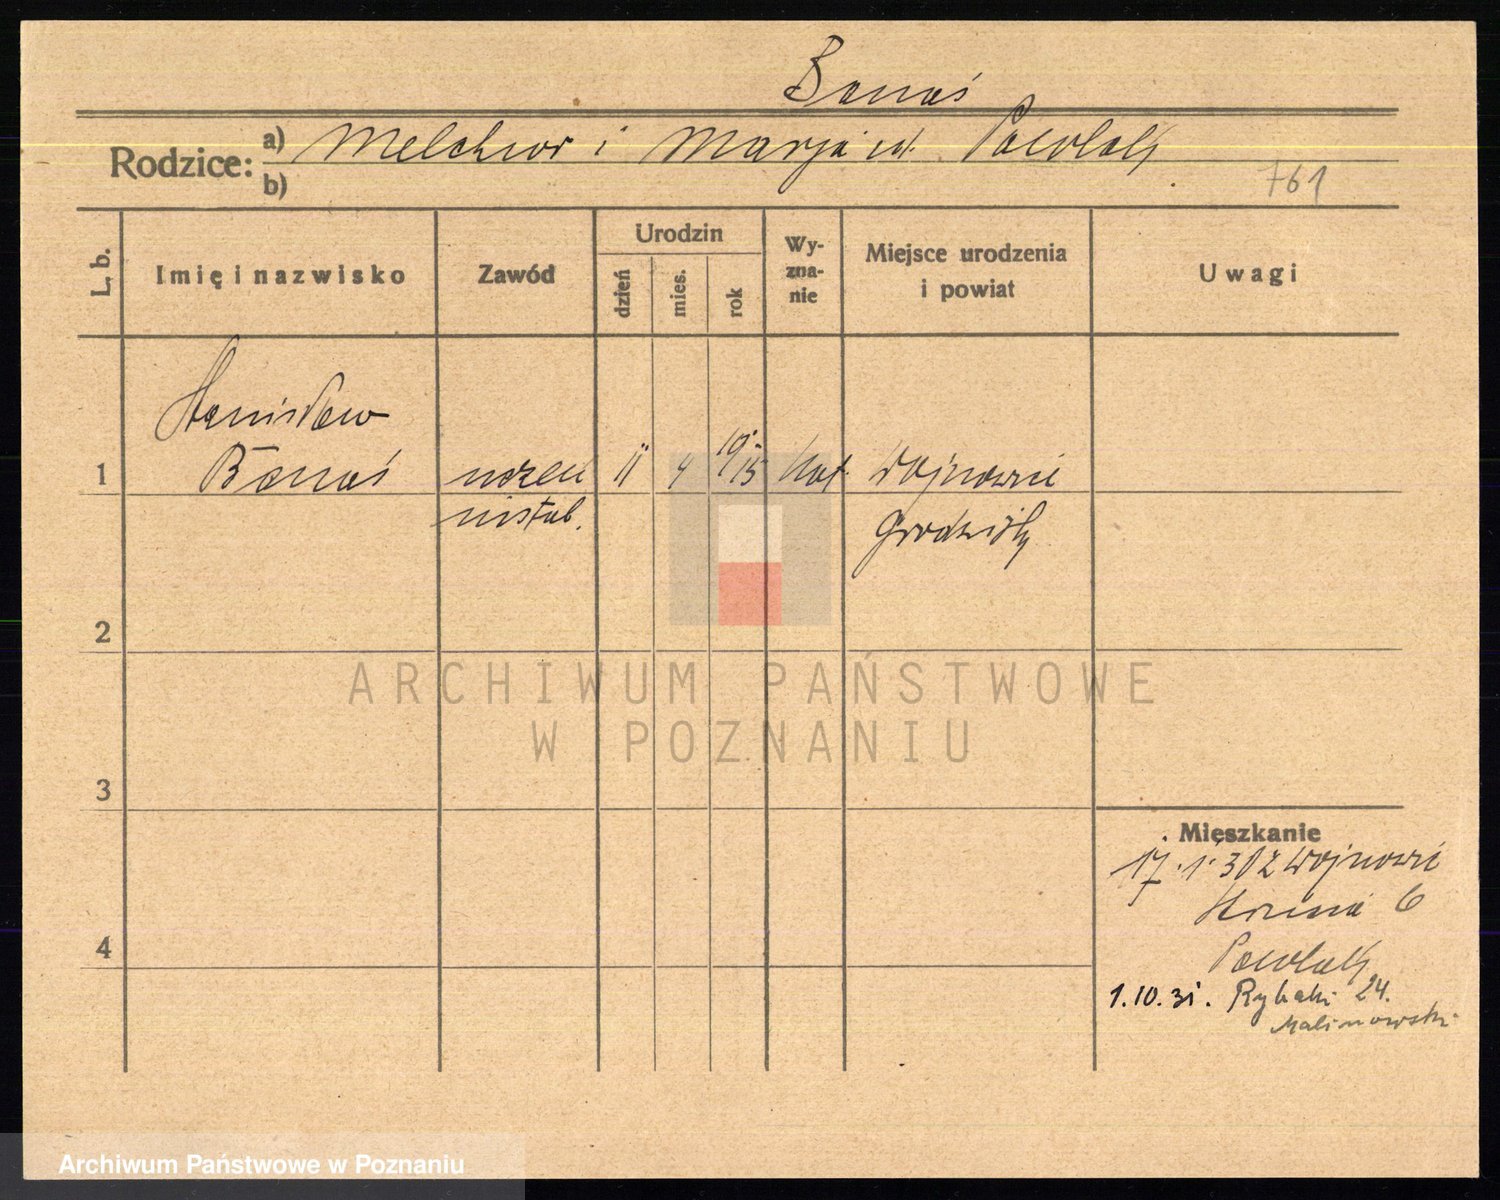 Banaś
Rodzice: a) Melchior i Marja ur. Pawlak
b)
761
L. b.
Imię i nazwisko
Zawód
Urodzin
dzień
mies.
rok
Wy-
zna-
nie
Miejsce urodzenia
i powiat
Uwagi
Stanisław
1 Banaś uczeń 11 4 19 15 kat. Wojnowice
Grodzisk
2
3
4
Mieszkanie
17.1.30 z Wojnowic
6
Pawlak
1.10.31. Rybaki 24.
Malinowski
ARCHIWUM PAŃSTWOWE
W POZNANIU
Archiwum Państwowe w Poznaniu